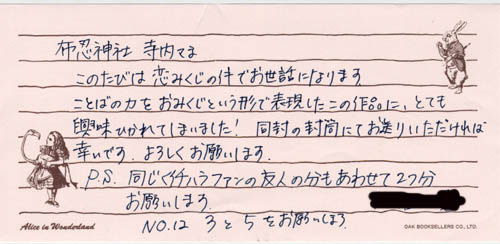 布忍神社 寺内さま
このたびは恋みくじの件でお世話になります
ことばの力をおみくじという形で表現したこの作品に、とても
興味ひかれてしまいました! 同封の封筒にてお送りいただければ
幸いです. よろしくお願いします.
P.S. 同じくイチハラファンの友人の分もあわせて2つ分
お願いします.
NO.12 3と5をお願いします
Alice in Wonderland
OAK BOOKSELLERS CO., LTD.